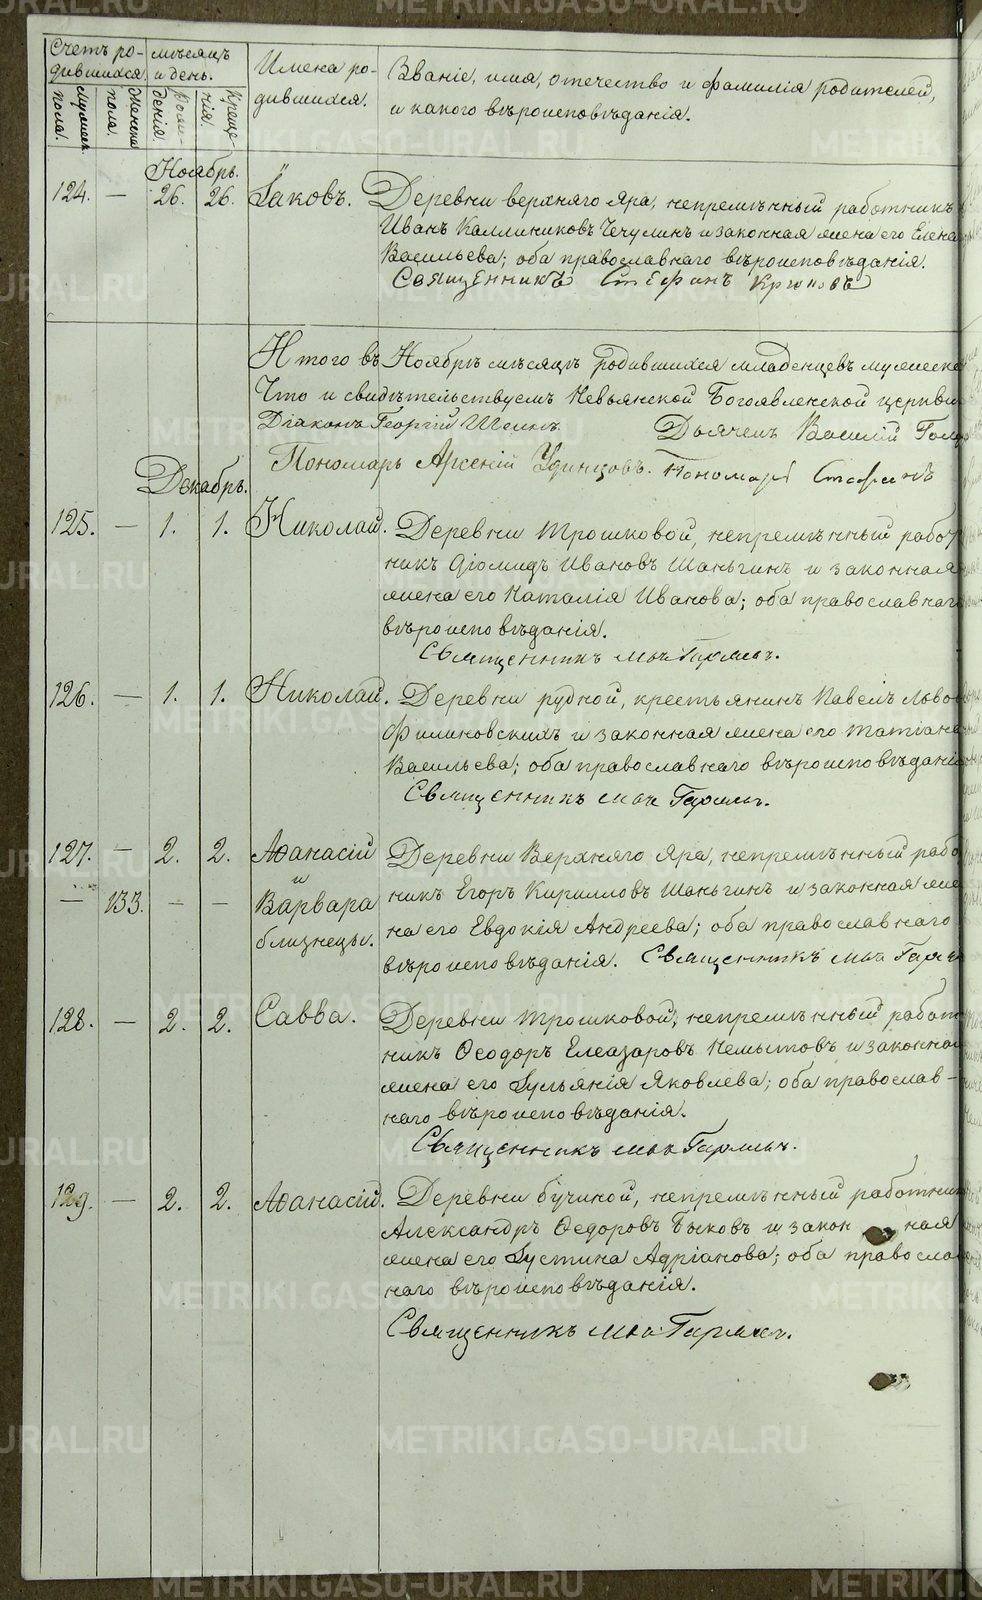 Счетъ ро-
дившихся.
Мужеск.
пола.
Женска
пола.
мѣсяцъ
и день.
Рож
денія.
Креще-
нія.
Имена ро-
дившихся.
Званіе, имя, отечество и фамилія родителей,
и какого вѣроисповѣданія.
Ноябрь.
124. — 26. 26. Іаковъ. Деревни верхняго Яра, непремѣнный работникъ
Иванъ Каллиниковъ Чечулинъ и законная жена его Елена
Васильева; оба православнаго вѣроисповѣданія.
Священникъ Стефанъ
Итого въ Ноябрѣ мѣсяцѣ родившихся младенцевъ мужеска
Что и свидѣтельствуемъ Невьянской Богоявленской церкви
Діаконъ Георгій Дьячекъ Василій
Пономарь Арсеній Удинцовъ. Пономарь Стефанъ
Декабрь.
125. — 1. 1. Николай. Деревни Трошковой, непремѣнный работ
никъ Діомидъ Ивановъ Шаньгинъ и законная
жена его Наталія Иванова; оба православнаг
вѣроисповѣданія.
Священникъ
126. — 1. 1. Николай. Деревни рудной, крестьянинъ Павелъ Львов
Филиновскихъ и законная жена его Татіана
Васильева; оба православнаго вѣроисповѣдані
Священникъ
127. — 2. 2. Аѳанасій Деревни Верхняго Яра, непремѣнный рабо
и
— 133. — — Варвара никъ Егоръ Кирилловъ Шаньгинъ и законная же
близнецы. на его Евдокія Андреева; оба православнаго
вѣроисповѣданія. Священникъ
128. — 2. 2. Савва. Деревни Трошковой, непремѣнный работ
никъ Ѳеодоръ Елеазаровъ Немытовъ и законна
жена его Іульянія Яковлева; оба православ-
наго вѣроисповѣданія.
Священникъ
129. — 2. 2. Аѳанасій. Деревни бучиной, непремѣнный работник
Александръ Ѳедоровъ Быковъ и закон ная
жена его Іустина Адріанова; оба правосла
наго вѣроисповѣданія.
Священникъ
METRIKI.GASO-URAL.RU